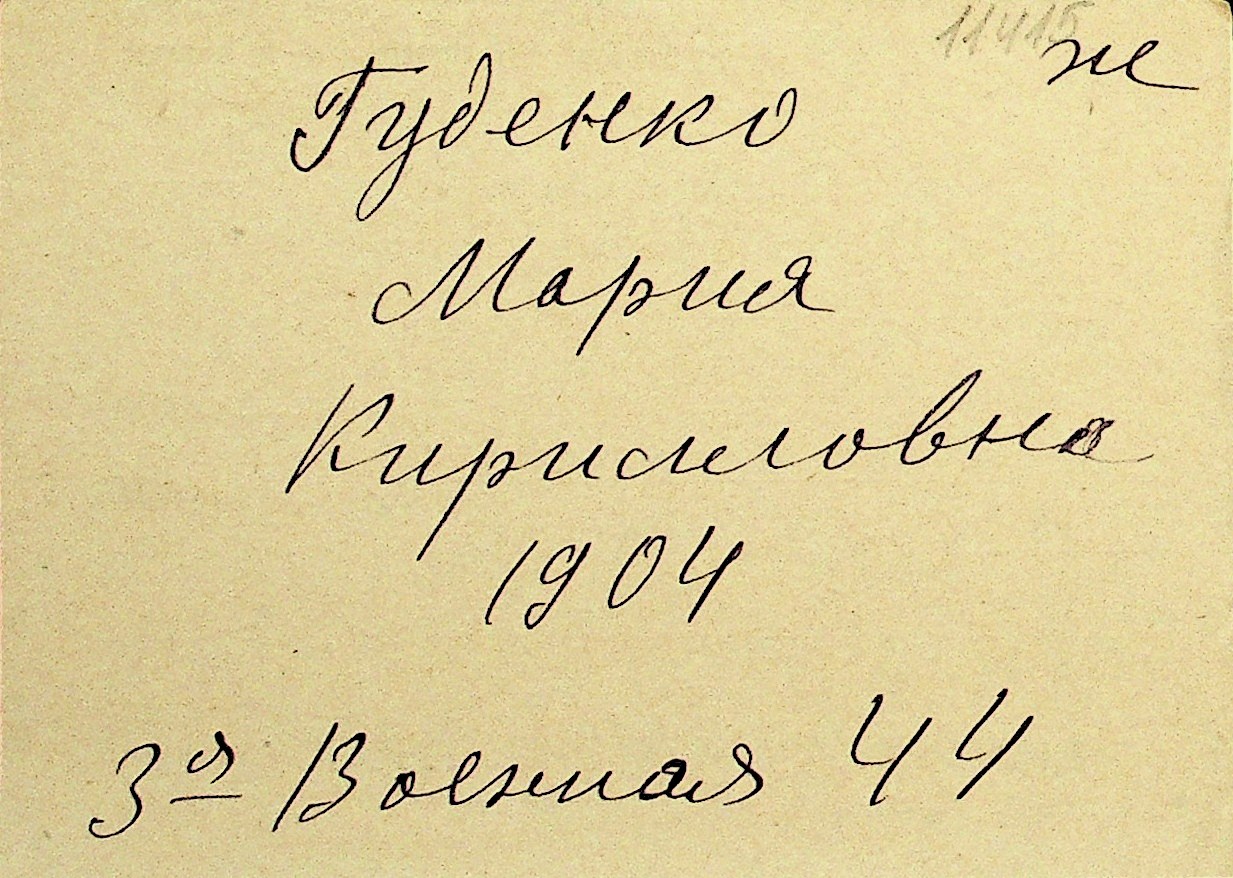 11415
ж
Гуденко
Мария
Кирилловна
1904
3я Военная 44